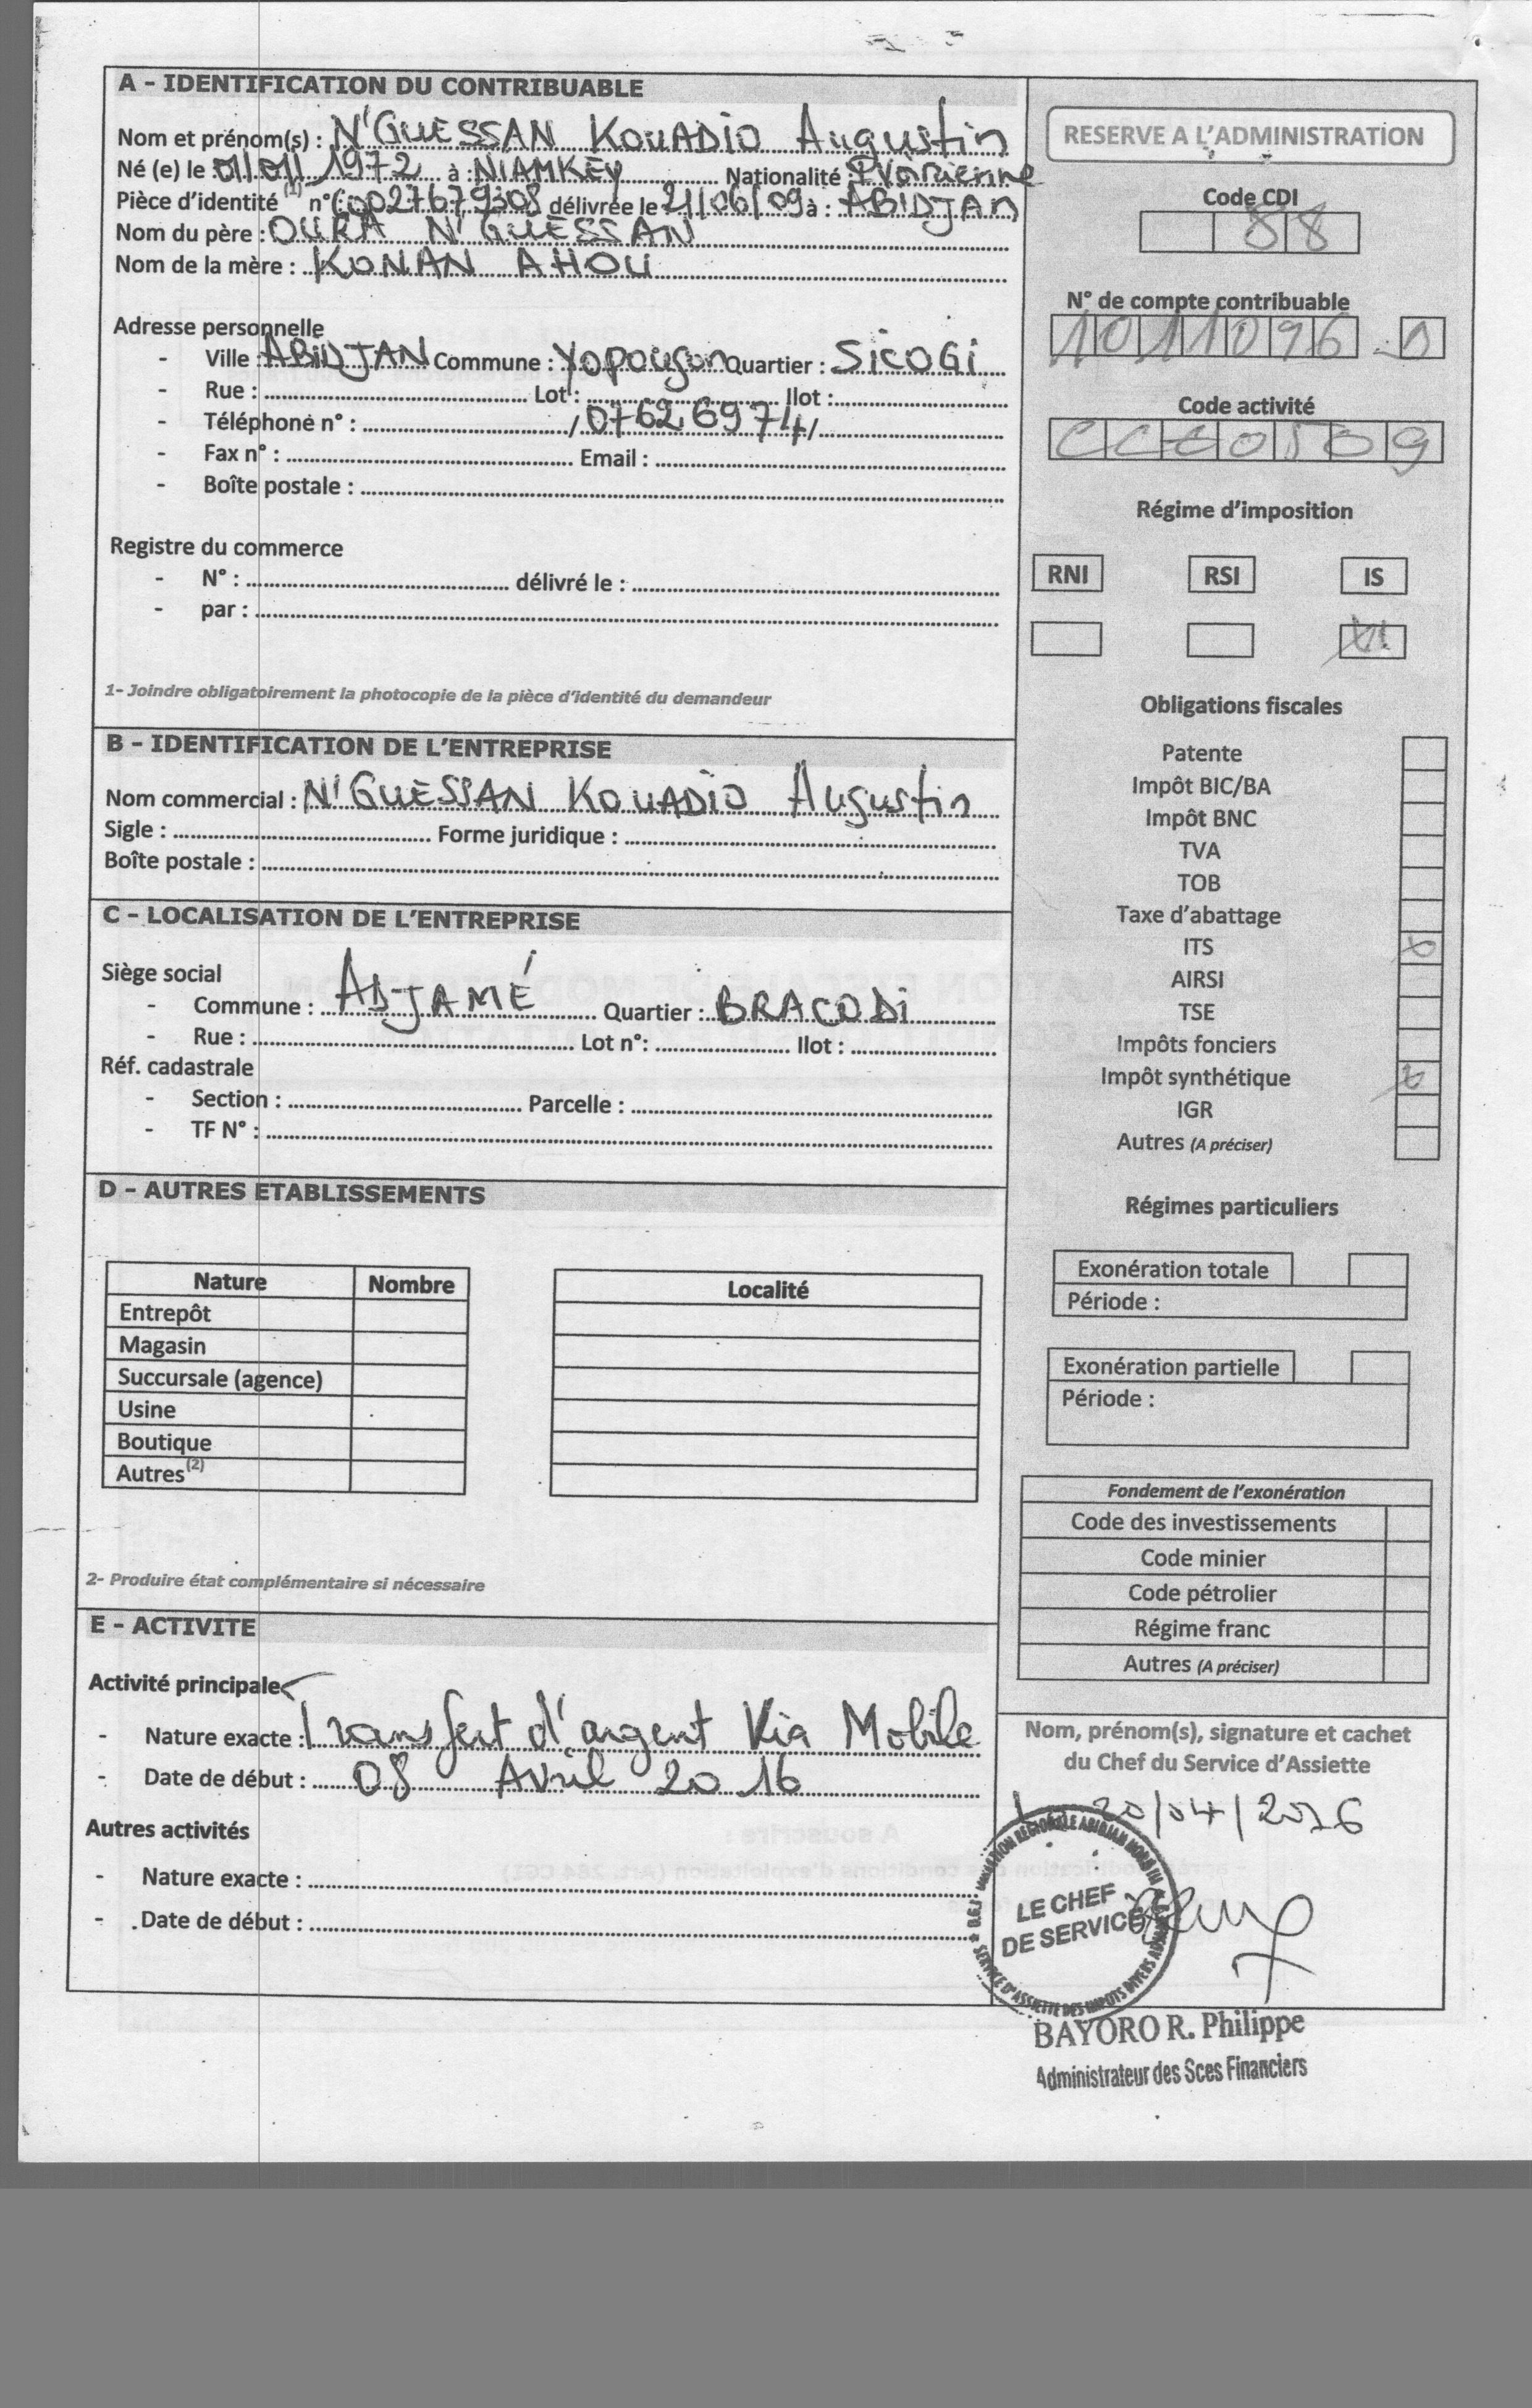 A - IDENTIFICATION DU CONTRIBUABLE
Nom et prénom(s) : N'GUESSAN KOUADIO Augustin
Né (e) le 01/01/1972 à : NIAMKEY Nationalité Ivoirienne
Pièce d'identité (1) n° C 0027679308 délivrée le 21/06/09 à : ABIDJAN
Nom du père : OURA N'GUESSAN
Nom de la mère : KONAN AHOU
Adresse personnelle
- Ville : ABIDJAN Commune : Yopougon Quartier : SICOGI
- Rue : Lot : Ilot :
- Téléphone n° : / 07626974 /
- Fax n° : Email :
- Boîte postale :
Registre du commerce
- N° : délivré le :
- par :
1- Joindre obligatoirement la photocopie de la pièce d'identité du demandeur
B - IDENTIFICATION DE L'ENTREPRISE
Nom commercial : N'GUESSAN KOUADIO Augustin
Sigle : Forme juridique :
Boîte postale :
C - LOCALISATION DE L'ENTREPRISE
Siège social
- Commune : ADJAMÉ Quartier : BRACODI
- Rue : Lot n°: Ilot :
Réf. cadastrale
- Section : Parcelle :
- TF N° :
D - AUTRES ETABLISSEMENTS
Nature Nombre Localité
Entrepôt
Magasin
Succursale (agence)
Usine
Boutique
Autres (2)
2- Produire état complémentaire si nécessaire
E - ACTIVITE
Activité principale
- Nature exacte : Transfert d'argent Via Mobile
- Date de début : 08 Avril 2016
Autres activités
- Nature exacte :
- Date de début :
RESERVE A L'ADMINISTRATION
Code CDI
88
N° de compte contribuable
1011096
Code activité
0509
Régime d'imposition
RNI RSI IS
X
Obligations fiscales
Patente
Impôt BIC/BA
Impôt BNC
TVA
TOB
Taxe d'abattage
ITS x
AIRSI
TSE
Impôts fonciers
Impôt synthétique x
IGR
Autres (A préciser)
Régimes particuliers
Exonération totale
Période :
Exonération partielle
Période :
Fondement de l'exonération
Code des investissements
Code minier
Code pétrolier
Régime franc
Autres (A préciser)
Nom, prénom(s), signature et cachet
du Chef du Service d'Assiette
20/04/2016
LE CHEF
DE SERVICE
SERVICE D'ASSIETTE DES IMPOTS DIVERS
BAYORO R. Philippe
Administrateur des Sces Financiers